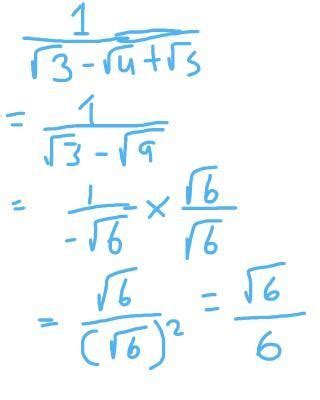 1/(√3 - √4 + √5)
= 1/(√3 - √9)
= 1/(-√6) × √6/√6
= √6/(√6)² = √6/6